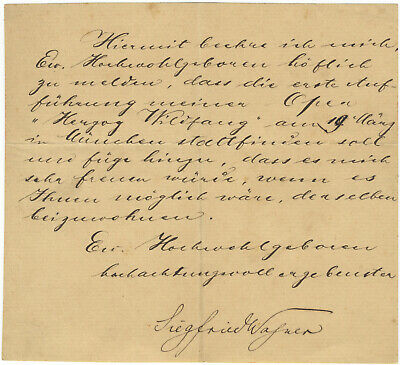 Hiermit beehre ich mich,
Ew. Hochwohlgeboren höflich
zu melden, dass die erste Auf-
führung meiner Oper
„Herzog Wildfang" am 19 März
in München stattfinden soll
und füge hinzu, dass es mich
sehr freuen würde, wenn es
Ihnen möglich wäre, derselben
beizuwohnen.
Ew. Hochwohlgeboren
hochachtungsvoll ergebenster
Siegfried Wagner